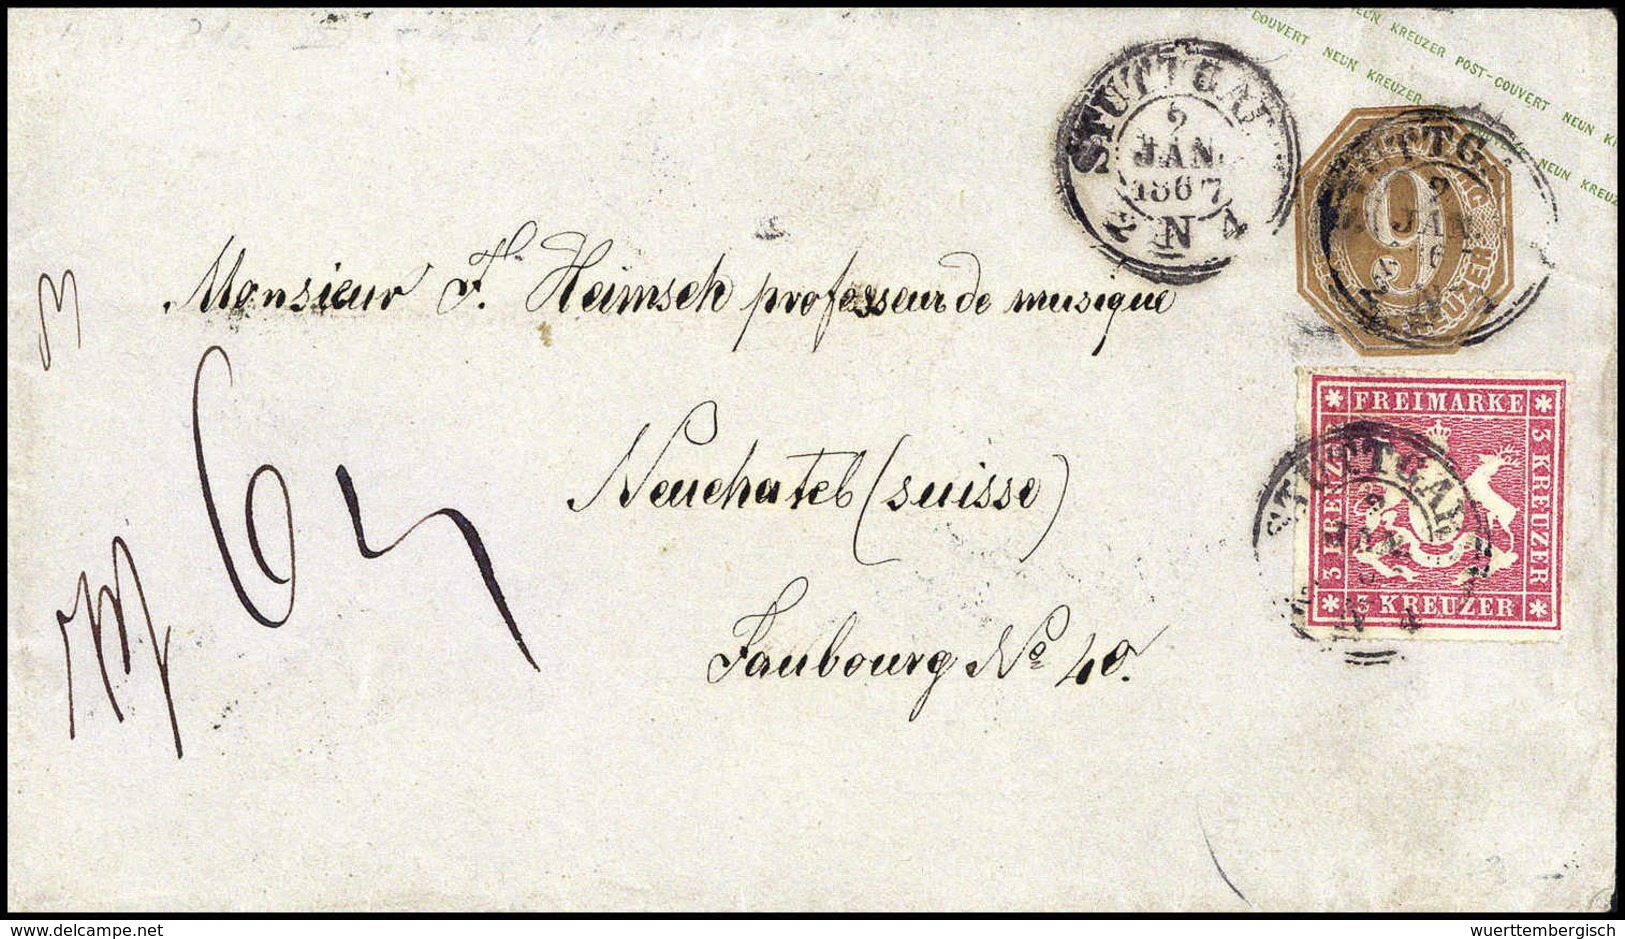 NEUN KREUZER POST-COUVERT NEUN
COUVERT NEUN KREUZER POST-COUVERT NEUN
NEUN KREUZER
STUTTGART
2
JAN.
1867
N 4
STUTTG
2
JAN.
9
Monsieur Fh. Heimsch professeur de musique
Neuchatel (suisse)
Faubourg No 40.
64
FREIMARKE
3 KREUZER
3 KREUZER
3 KREUZER
STUTTGART
2
JAN
delcampe.net
wuerttembergisch